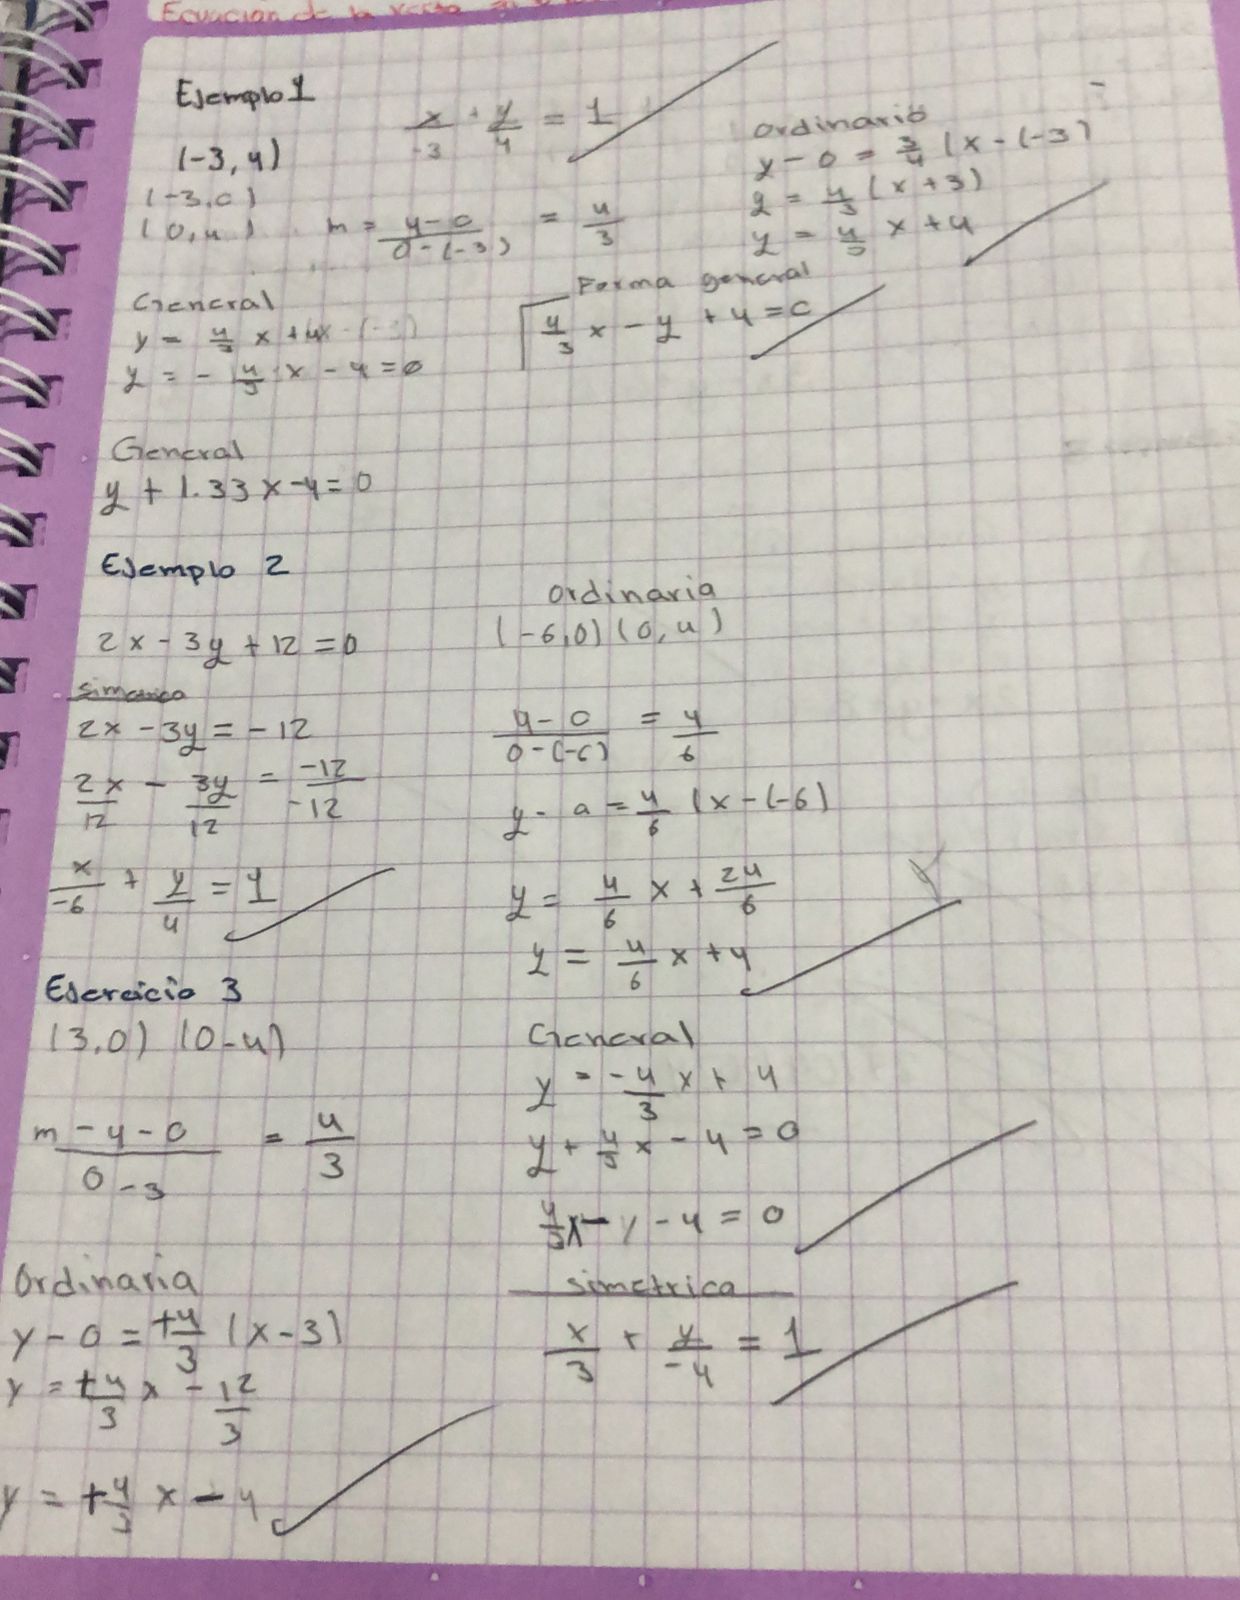 Ecuación de la
Ejemplo 1
x/-3 + y/4 = 1
(-3, 4)
(-3, 0)
(0, 4)
m = 4-0/0-(-3) = 4/3
Ordinario
y - 0 = 3/4 (x - (-3)
y = 4/3 (x + 3)
y = 4/3 x + 4
General
y = 4/3 x + 4x
y = - 4/3 x - 4 = 0
Forma general
4/3 x - y + 4 = 0
General
y + 1.33 x - 4 = 0
Ejemplo 2
2x - 3y + 12 = 0
2x - 3y = -12
2x/12 - 3y/12 = -12/-12
x/-6 + y/4 = 1
Ordinaria
(-6,0) (0, 4)
4-0/0-(-6) = 4/6
y - 0 = 4/6 (x - (-6)
y = 4/6 x + 24/6
y = 4/6 x + 4
Ejercicio 3
(3,0) (0-4)
m -4-0/0-3 = 4/3
Ordinaria
y - 0 = +4/3 (x - 3)
y = +4/3 x - 12/3
y = +4/3 x - 4
General
y = -4/3 x + 4
y + 4/3 x - 4 = 0
4/3 x - y - 4 = 0
simetrica
x/3 + y/-4 = 1